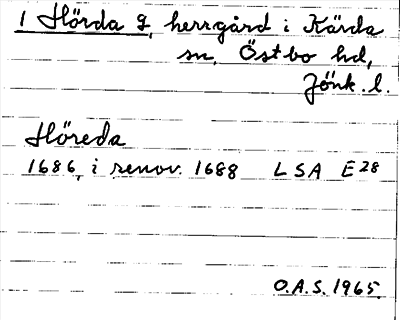 1 Hörda g, herrgård i Kärda
sn, Östbo hd,
Jönk. l.
Höreda
1686, i renov. 1688 LSA E28
O.A.S. 1965.